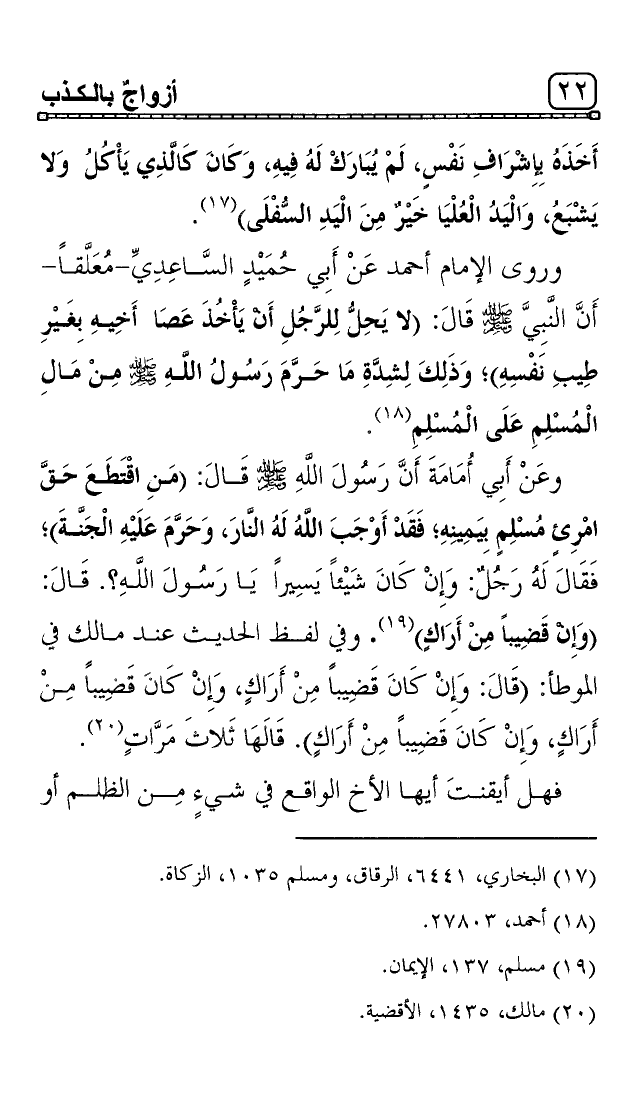 ٢٢
أزواجٌ بالكذب
أَخَذَهُ بِإِشْرَافِ نَفْسٍ، لَمْ يُبَارَكْ لَهُ فِيهِ، وَكَانَ كَالَّذِي يَأْكُلُ وَلا
يَشْبَعُ، وَالْيَدُ الْعُلْيَا خَيْرٌ مِنَ الْيَدِ السُّفْلَى)(١٧).
وروى الإمام أحمد عَنْ أَبِي حُمَيْدٍ السَّاعِدِيِّ–مُعَلَّقاً–
أَنَّ النَّبِيَّ ﷺ قَالَ: (لا يَحِلُّ لِلرَّجُلِ أَنْ يَأْخُذَ عَصَا أَخِيهِ بِغَيْرِ
طِيبِ نَفْسِهِ)؛ وَذَلِكَ لِشِدَّةِ مَا حَرَّمَ رَسُولُ اللَّهِ ﷺ مِنْ مَالِ
الْمُسْلِمِ عَلَى الْمُسْلِمِ(١٨).
وعَنْ أَبِي أُمَامَةَ أَنَّ رَسُولَ اللَّهِ ﷺ قَالَ: (مَنِ اقْتَطَعَ حَقَّ
امْرِئٍ مُسْلِمٍ بِيَمِينِهِ؛ فَقَدْ أَوْجَبَ اللَّهُ لَهُ النَّارَ، وَحَرَّمَ عَلَيْهِ الْجَنَّةَ)؛
فَقَالَ لَهُ رَجُلٌ: وَإِنْ كَانَ شَيْئاً يَسِيراً يَا رَسُولَ اللَّهِ؟. قَالَ:
(وَإِنْ قَضِيباً مِنْ أَرَاكٍ)(١٩). وفي لفظ الحديث عند مالك في
الموطأ: (قَالَ: وَإِنْ كَانَ قَضِيباً مِنْ أَرَاكٍ، وَإِنْ كَانَ قَضِيباً مِنْ
أَرَاكٍ، وَإِنْ كَانَ قَضِيباً مِنْ أَرَاكٍ). قَالَهَا ثَلاثَ مَرَّاتٍ(٢٠).
فهل أيقنتَ أيها الأخ الواقع في شيءٍ مِن الظلم أو
(١٧) البخاري، ٦٤٤١، الرقاق، ومسلم ١٠٣٥، الزكاة.
(١٨) أحمد، ٢٧٨٠٣.
(١٩) مسلم، ١٣٧، الإيمان.
(٢٠) مالك، ١٤٣٥، الأقضية.